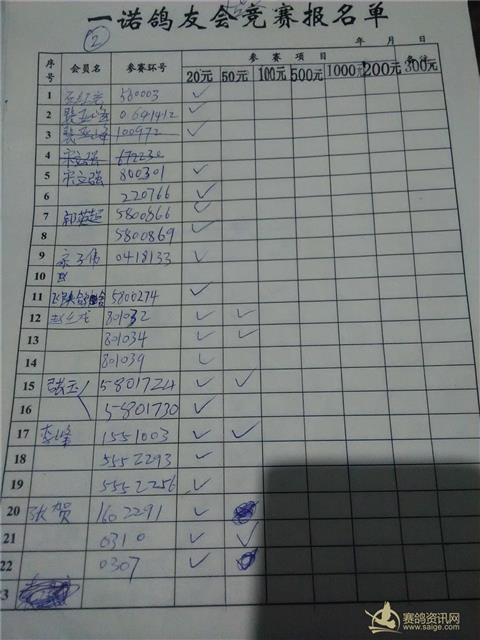 一诺鸽友会竞赛报名单
②
年 月 日
序号 会员名 参赛环号 参赛项目 备注
20元 50元 100元 500元 1000元 200元 300元
1 580003 ✓
2 0.641412 ✓
3 100972 ✓
4 宋立强
5 宋立强 800301 ✓
6 220766 ✓
7 5800866 ✓
8 5800869 ✓
9 0418133 ✓
10
11 5800274 ✓
12 801032 ✓ ✓
13 801034 ✓ ✓
14 801039 ✓
15 张玉 5801724 ✓ ✓
16 5801730 ✓
17 李峰 1551003 ✓ ✓
18 5552293 ✓
19 5552256 ✓
20 张贺 1602291 ✓
21 0310 ✓ ✓
22 0307 ✓
23
赛鸽资讯网
www.saige.com